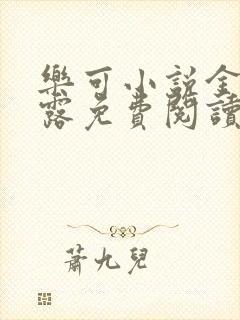 樂可小說全
露免費閱讀
蕭九兒